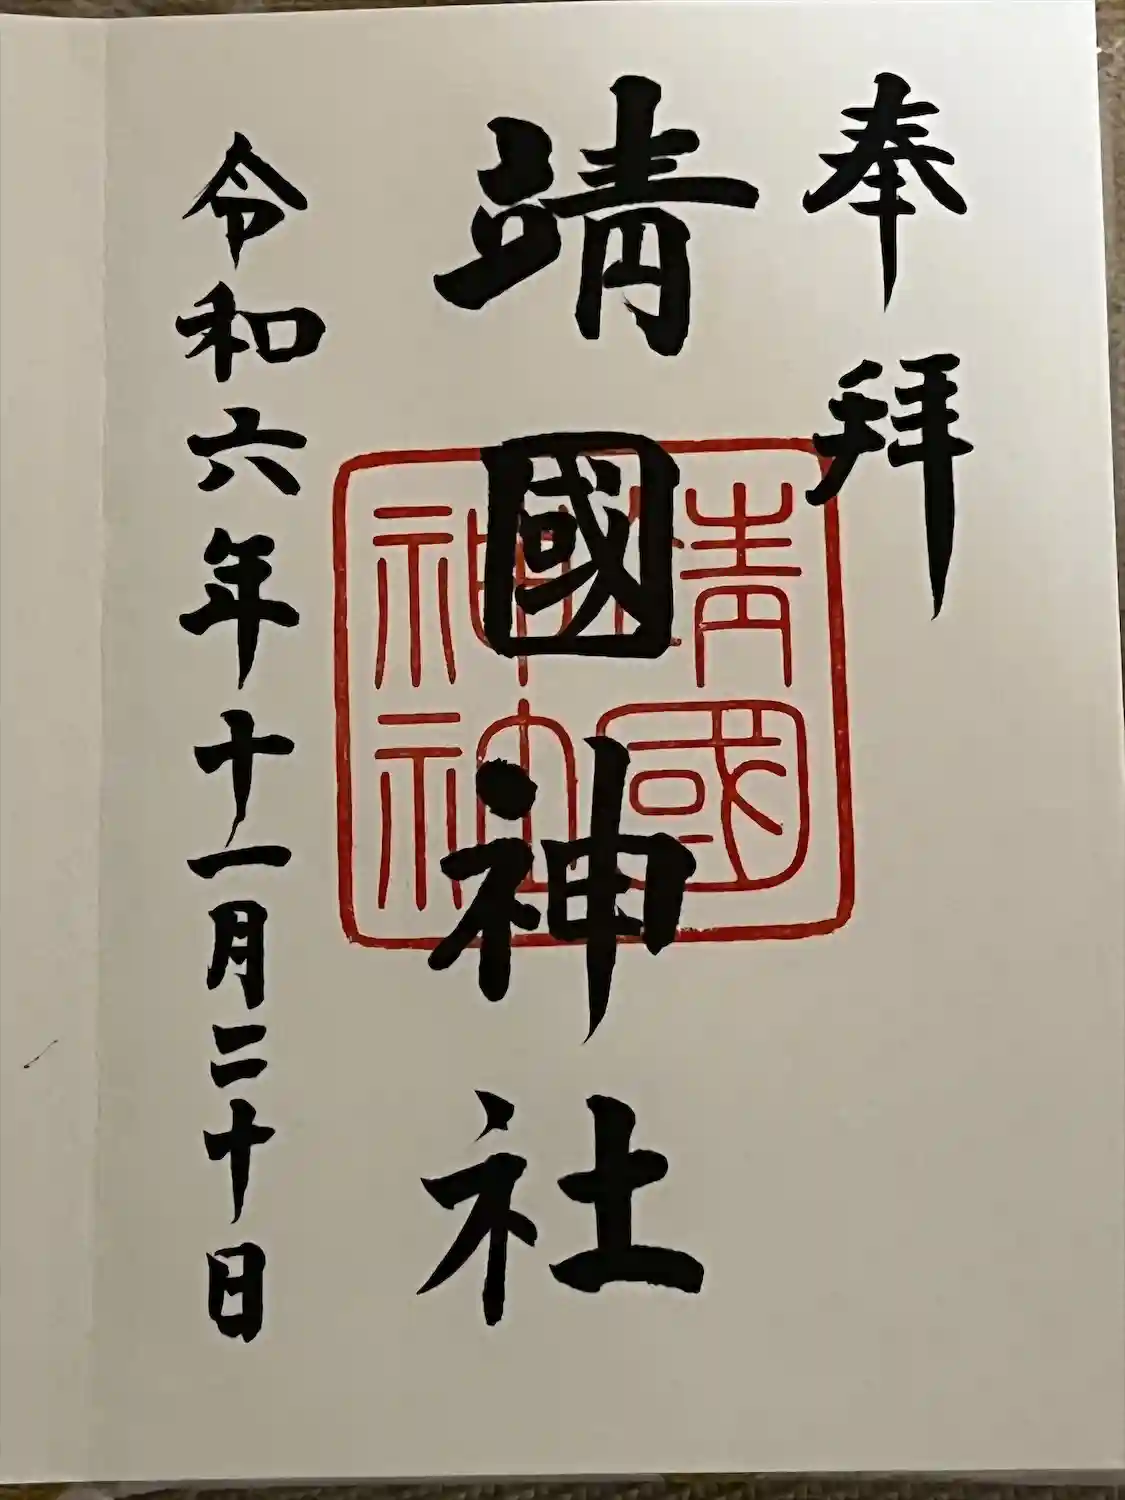 奉拝
靖國神社
令和六年十一月二十日
靖國
神社